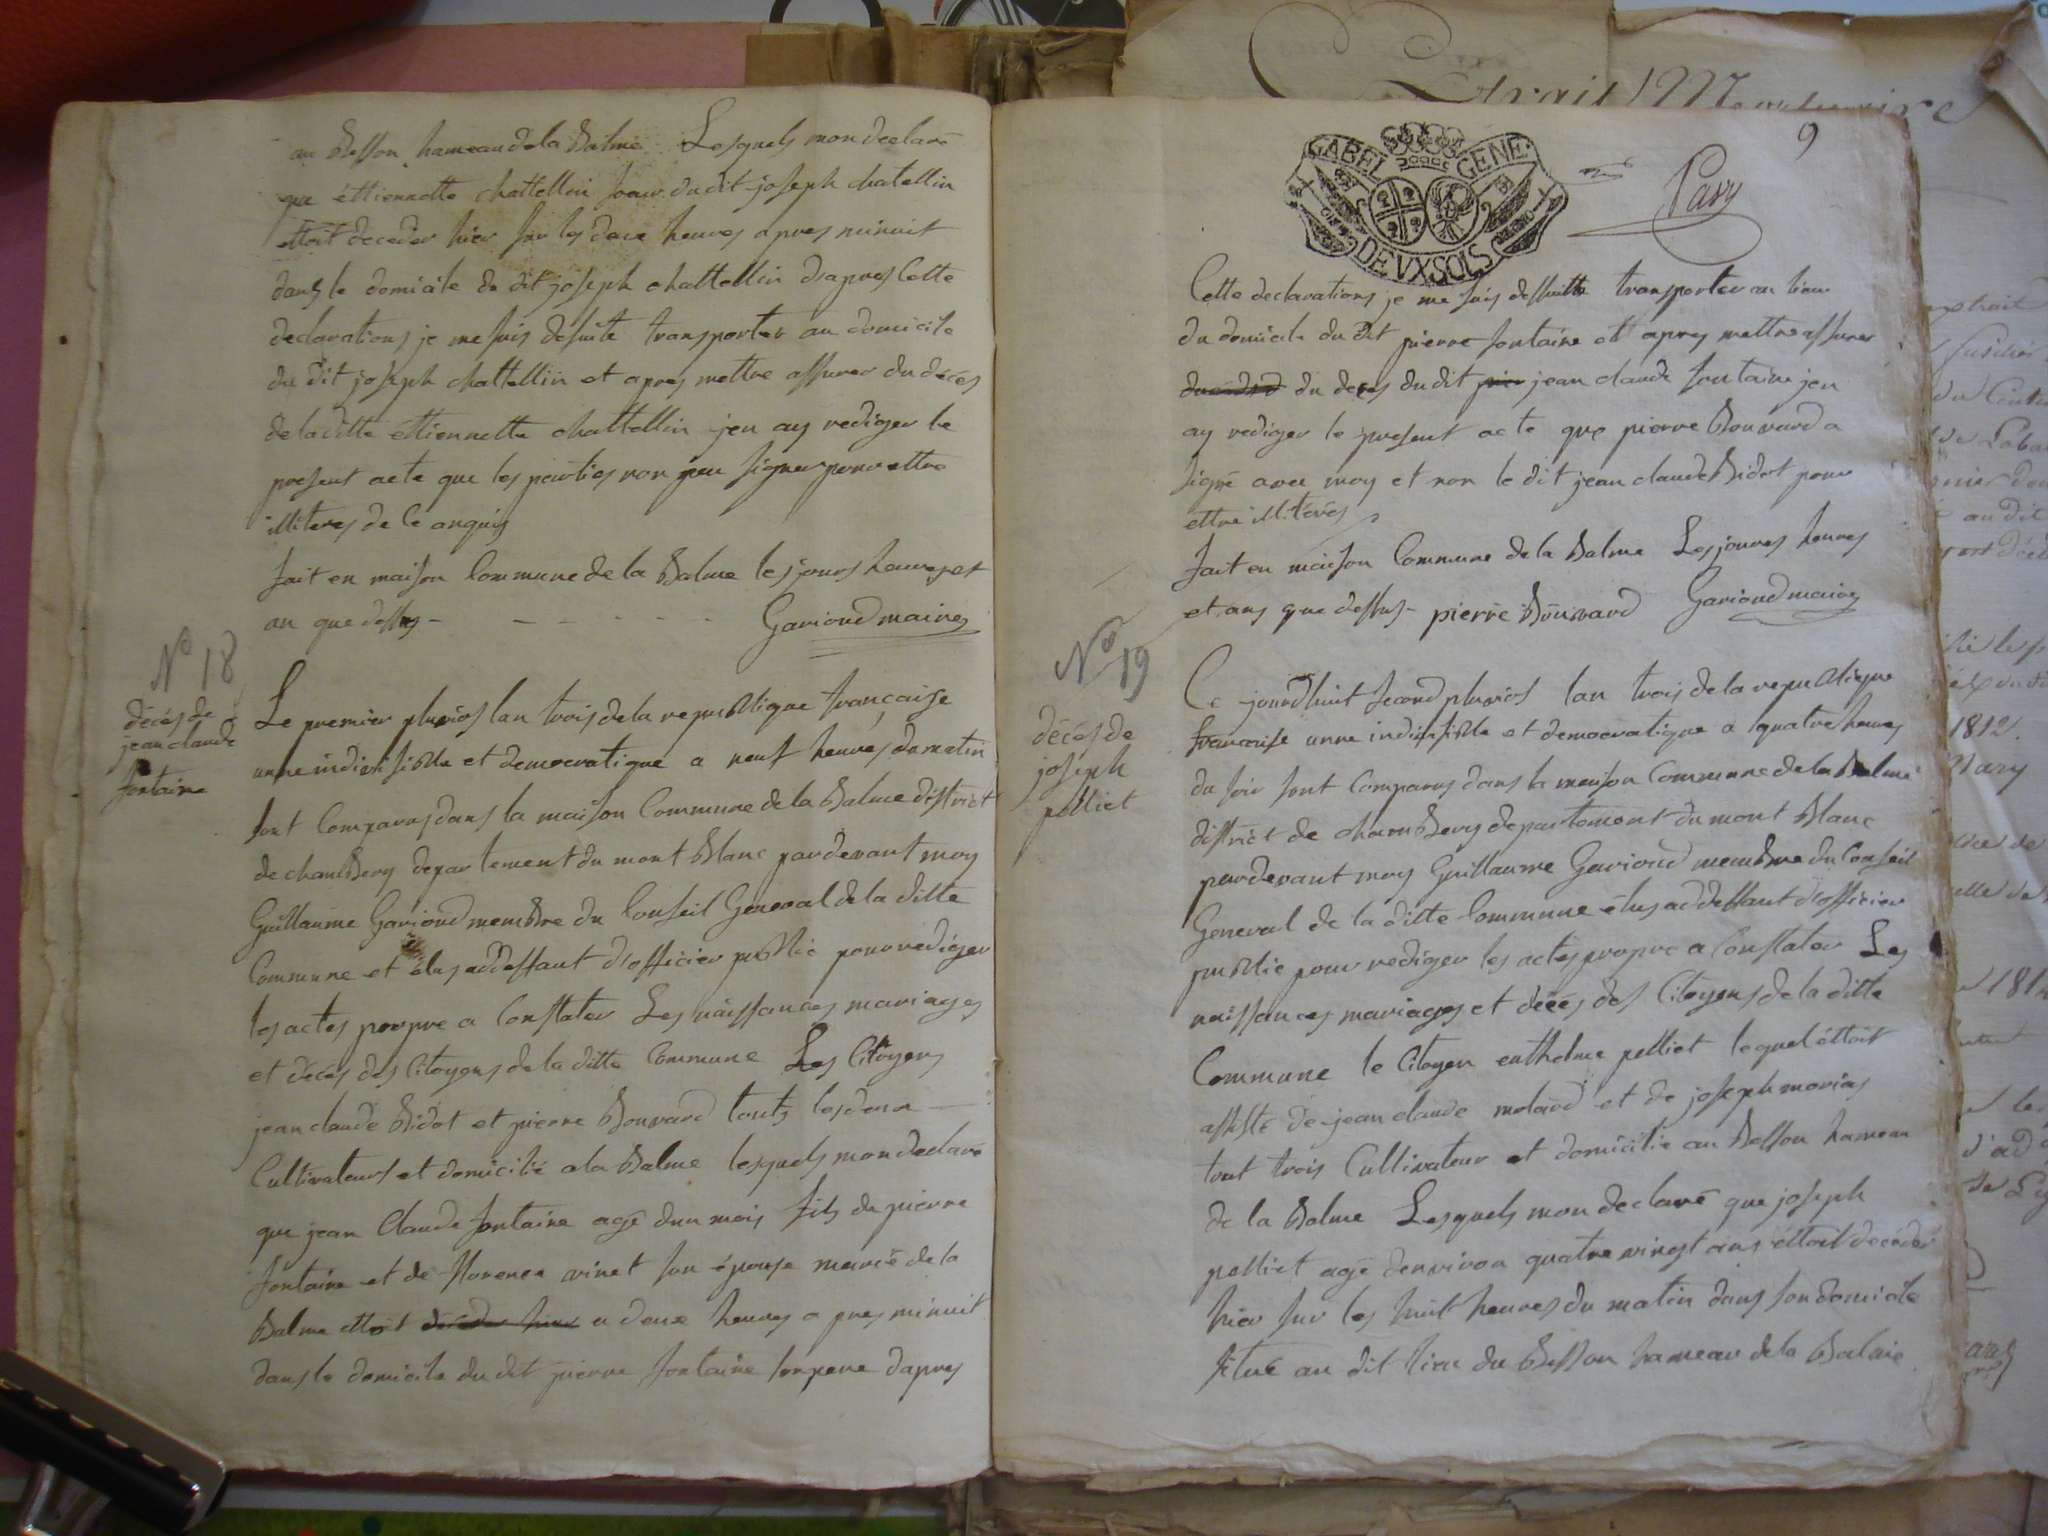 au Besson hameau de la Balme Lesquels mon declaré
que éttiennette chattellin soeur du dit joseph chatellin
ettoit deceder hier sur les deux heures apres minuit
dans le domicile du dit joseph chattellin dapres Cette
declarations je me suis desuite transporter au domicile
du dit joseph chattellin et apres mettre assurer du décès
de la ditte éttiennette chattellin jen ay rediger le
present acte que les parties non peu signer pour ettre
illiteres de ce enquis
fait en maison Commune de la Balme les jours heures et
an que dessus - Garioud maire
N° 18
décés de
jean claude
fontaine
Le premier pluvios lan trois de la republique française
unne indivisible et democratique a neuf heures du matin
sont Comparus dans la maison Commune de la Balme district
de chambery departement du mont Blanc pardevant moy
Guillaume Garioud membre du Conseil General de la ditte
Commune et élus addeffaut d'officier public pour rediger
les actes propre a Constater Les naissances mariages
et décés des Citoyens de la ditte Commune Les Citoyens
jean claude Bidot et pierre Bouvard touts les deux
Cultivateurs et domicilié a la Balme lesquels mon declaré
que jean Claude fontaine agé dun mois fils de pierre
fontaine et de florence vinet son épouse marié de la
Balme ettoit deceder hier a deux heures apres minuit
dans le domicile du dit pierre fontaine son pere dapres
9
GABEL GENE.
DEVX SOLS
Pavy
Cette declarations je me suis dessuitte transporter au lieu
du domicile du dit pierre fontaine et apres mettre assurer
du deces du dit jean claude fontaine jen
ay rediger le present acte que pierre Bouvard a
signé avec moy et non le dit jean claude Bidot pour
ettre illitérés
fait en maison Commune de la Balme Les jours heures
et ans que dessus - pierre Bouvard Garioud maire
N° 19
décés de
joseph
pelliet
Ce jourdhuit second pluvios lan trois de la republique
francoise unne indivisible et democratique a quatre heures
du soir sont Comparus dans la maison Commune de la Balme
district de chambery departement du mont Blanc
pardevant moy Guillaume Garioud membre du Conseil
General de la ditte Commune élus addeffaut d'officier
public pour rediger les actes propre a Constater Les
naissances mariages et décés des Citoyens de la ditte
Commune le Citoyen enthelme pelliet lequel éttoit
assisté de jean claude molard et de joseph marias
tout trois Cultivateur et domicilié au Besson hameau
de la Balme Lesquels mon declaré que joseph
pelliet agé denviron quatre vingt ans éttoit décéder
hier sur les huit heures du matin dans son domicile
situé au dit lieu du Besson hameau de la Balme
Extrait Mortuaire
extrait
fusilier
1812.
Pavy